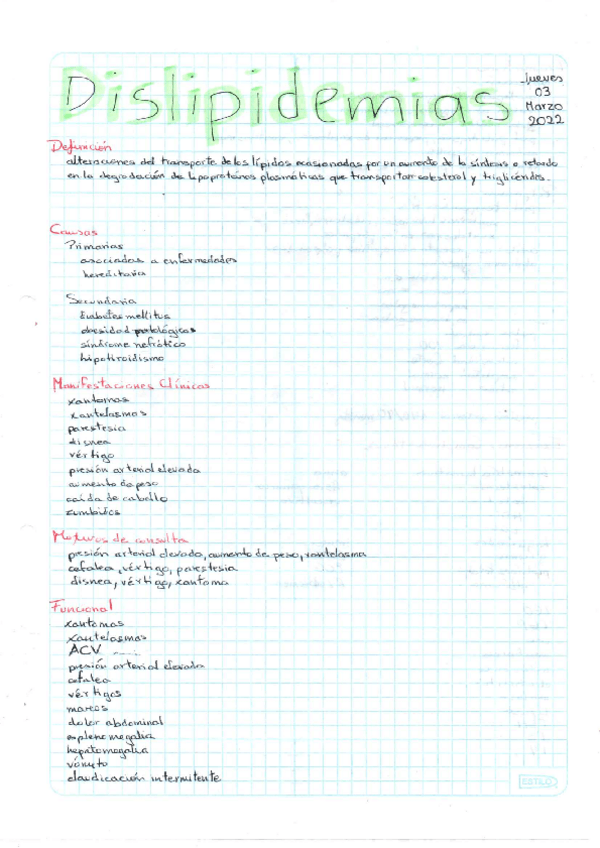 Dislipidemias
Jueves
03
Marzo
2022
Definición
alteraciones del transporte de los lípidos ocasionadas por un aumento de la síntesis o retardo
en la degradación de lipoproteínas plasmáticas que transportan colesterol y triglicéridos.
Causas
Primarias
asociadas a enfermedades
hereditaria
Secundaria
Diabetes mellitus
obesidad patológicas
síndrome nefrótico
hipotiroidismo
Manifestaciones Clínicas
xantomas
xantelasmas
parestesia
disnea
vértigo
presión arterial elevada
aumento de peso
caída de cabello
zumbidos
Motivos de consulta
presión arterial elevada, aumento de peso, xantelasma
cefalea, vértigo, parestesia
disnea, vértigo, xantoma
Funcional
xantomas
xantelasmas
ACV
presión arterial elevada
cefalea
vértigos
mareos
dolor abdominal
esplenomegalia
hepatomegalia
vómito
claudicación intermitente
ESTILO